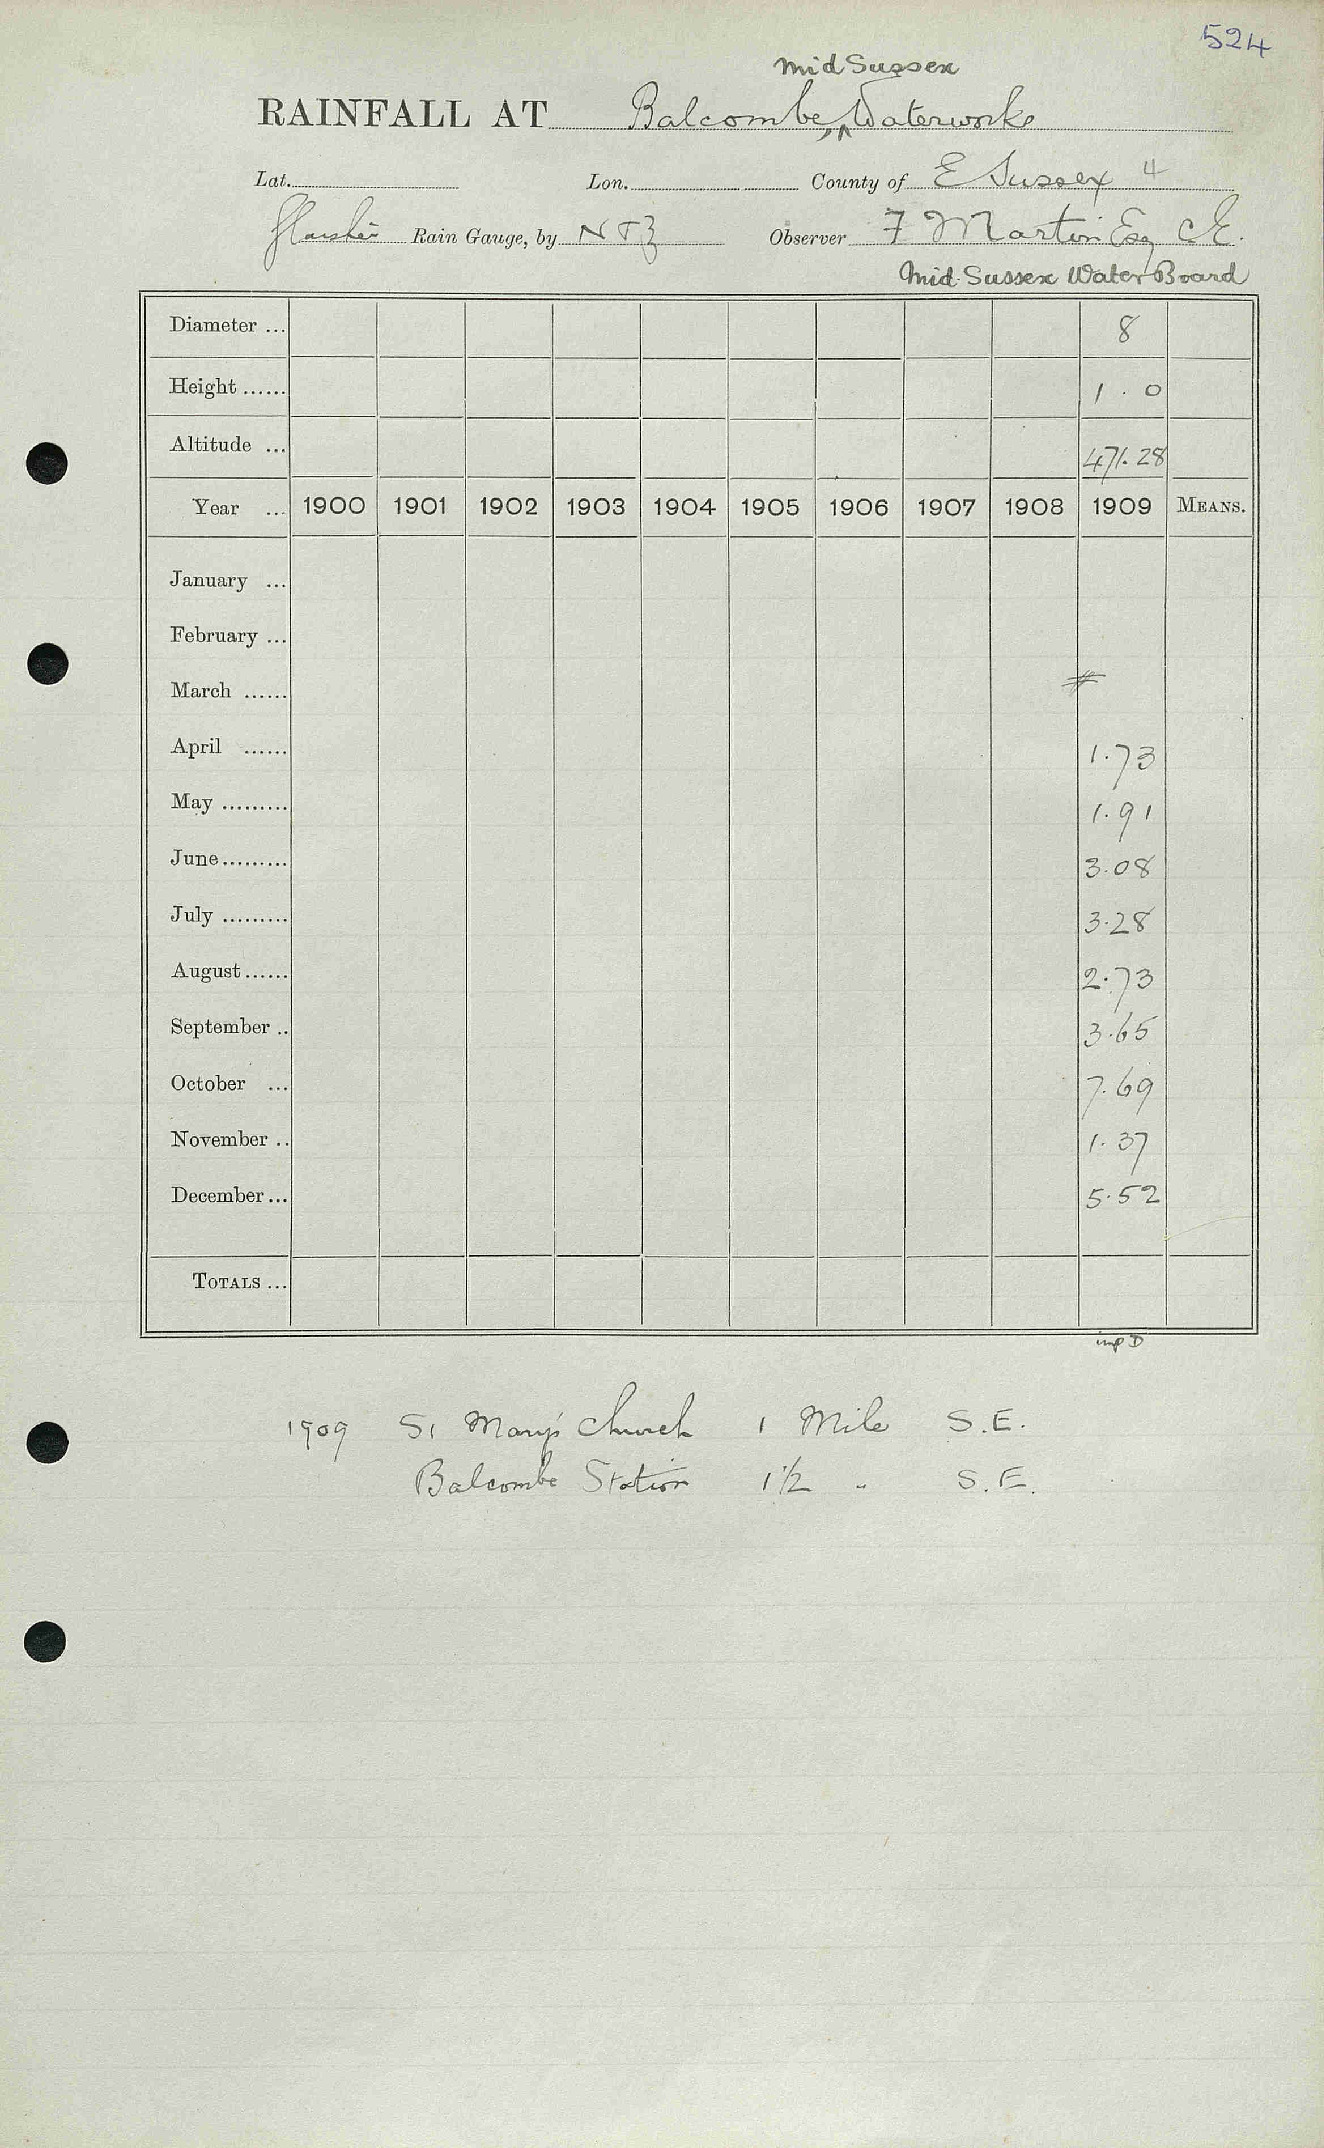 524
Mid Sussex
RAINFALL AT Balcombe, ^ Waterworks
Lat. Lon. County of E Sussex 4
Glaisher Rain Gauge, by N & Z Observer F Martin Esq C.E.
Mid Sussex Water Board
Diameter ... 8
Height ...... 1 . 0
Altitude ... 471.28
Year ... 1900 1901 1902 1903 1904 1905 1906 1907 1908 1909 MEANS.
January ...
February ...
March ......
April ...... 1.73
May ......... 1.91
June ......... 3.08
July ......... 3.28
August ...... 2.73
September .. 3.65
October ... 7.69
November .. 1.37
December ... 5.52
TOTALS ...
imp D
1909 St Mary's Church 1 Mile S.E.
Balcombe Station 1 1/2 " S.E.